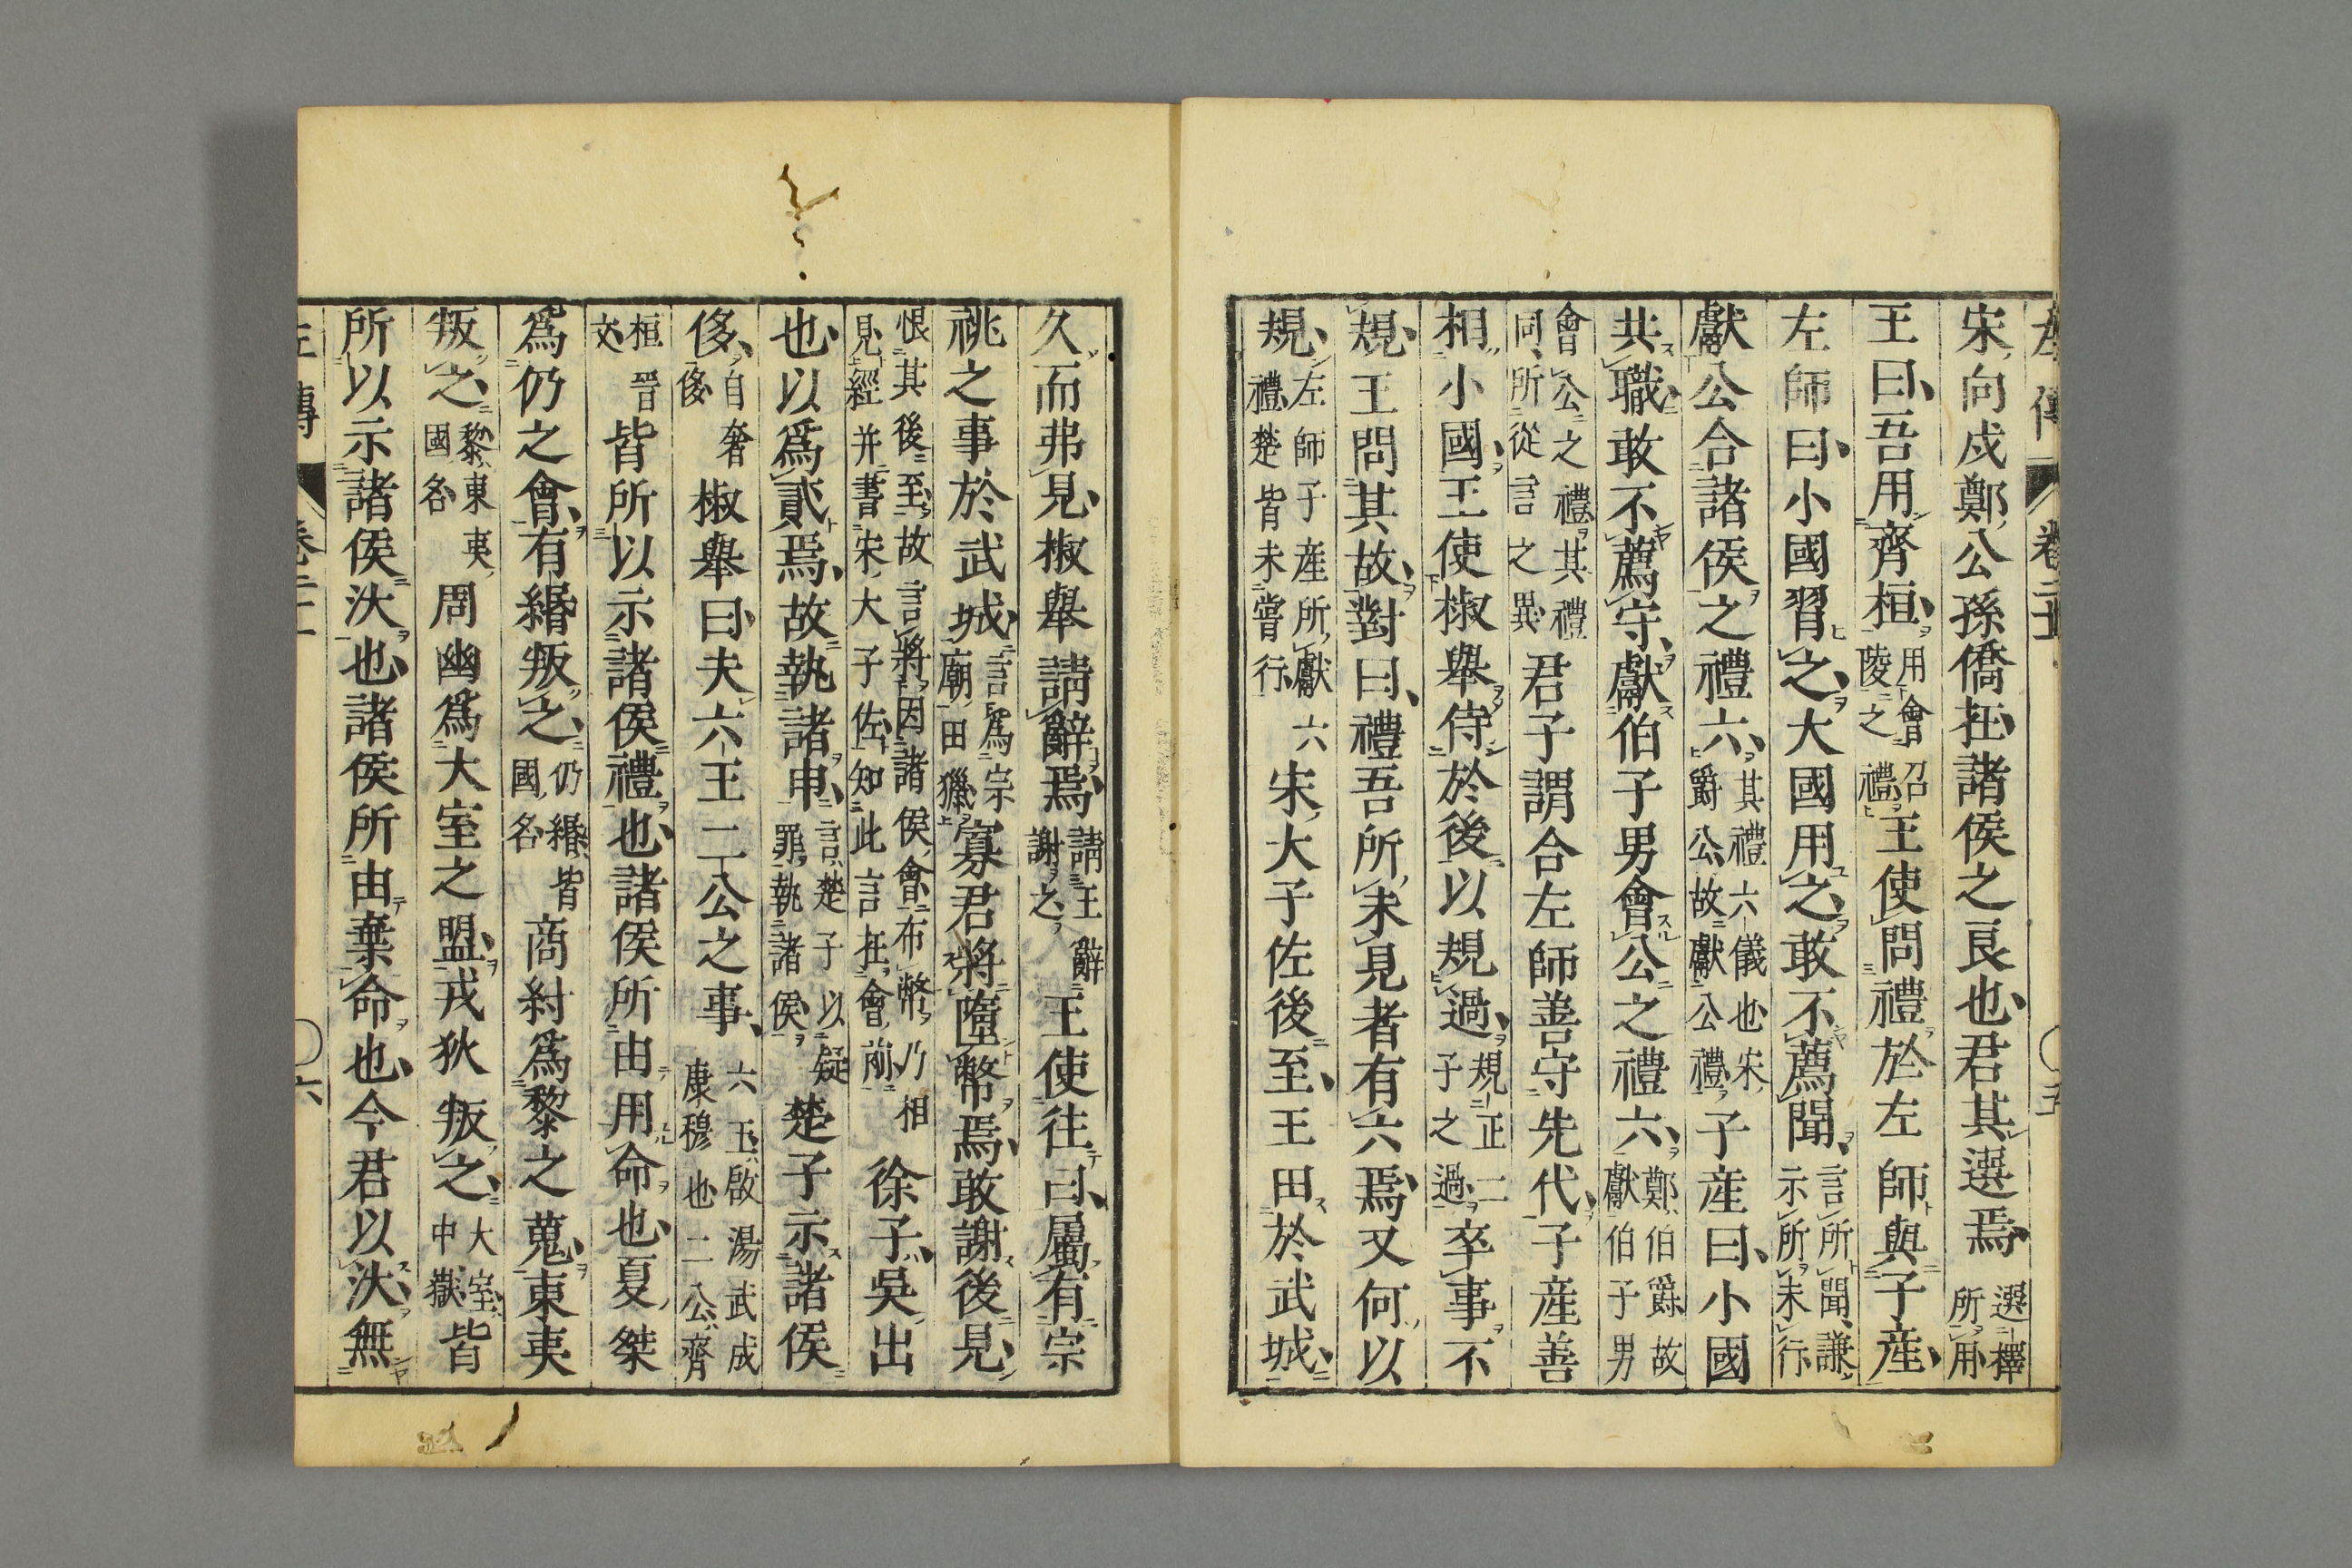 宋向戌鄭公孫僑在諸侯之良也君其選焉選擇所用
王曰吾用齊桓用會召陵之禮王使問禮於左師與子産
左師曰小國習之大國用之敢不薦聞言所聞謙示所未行
獻公合諸侯之禮六其禮六儀也宋爵公故獻公禮子産曰小國
共職敢不薦守獻伯子男會公之禮六鄭伯爵故獻伯子男
會公之禮其禮同所從言之異君子謂合左師善守先代子産善
相小國王使椒舉侍於後以規過規正二子之過卒事不
規王問其故對曰禮吾所未見者有六焉又何以
規左師子産所獻六禮楚皆未嘗行宋大子佐後至王田於武城
久而弗見椒舉請辭焉請王辭謝之王使往曰屬有宗
祧之事於武城言為宗廟田獵寡君將墮幣焉敢謝後見
恨其後至故言將因諸侯會布幣乃相見經并書宋大子佐知此言在會前徐子吳出
也以為貳焉故執諸申言楚子以疑罪執諸侯楚子示諸侯
侈自奢侈椒舉曰夫六王二公之事六王啟湯武成康穆也二公齊
桓晉文皆所以示諸侯禮也諸侯所由用命也夏桀
為仍之會有緡叛之仍緡皆國名商紂為黎之蒐東夷
叛之黎東夷國名周幽為大室之盟戎狄叛之大室中嶽皆
所以示諸侯汏也諸侯所由棄命也今君以汏無
左傳
六